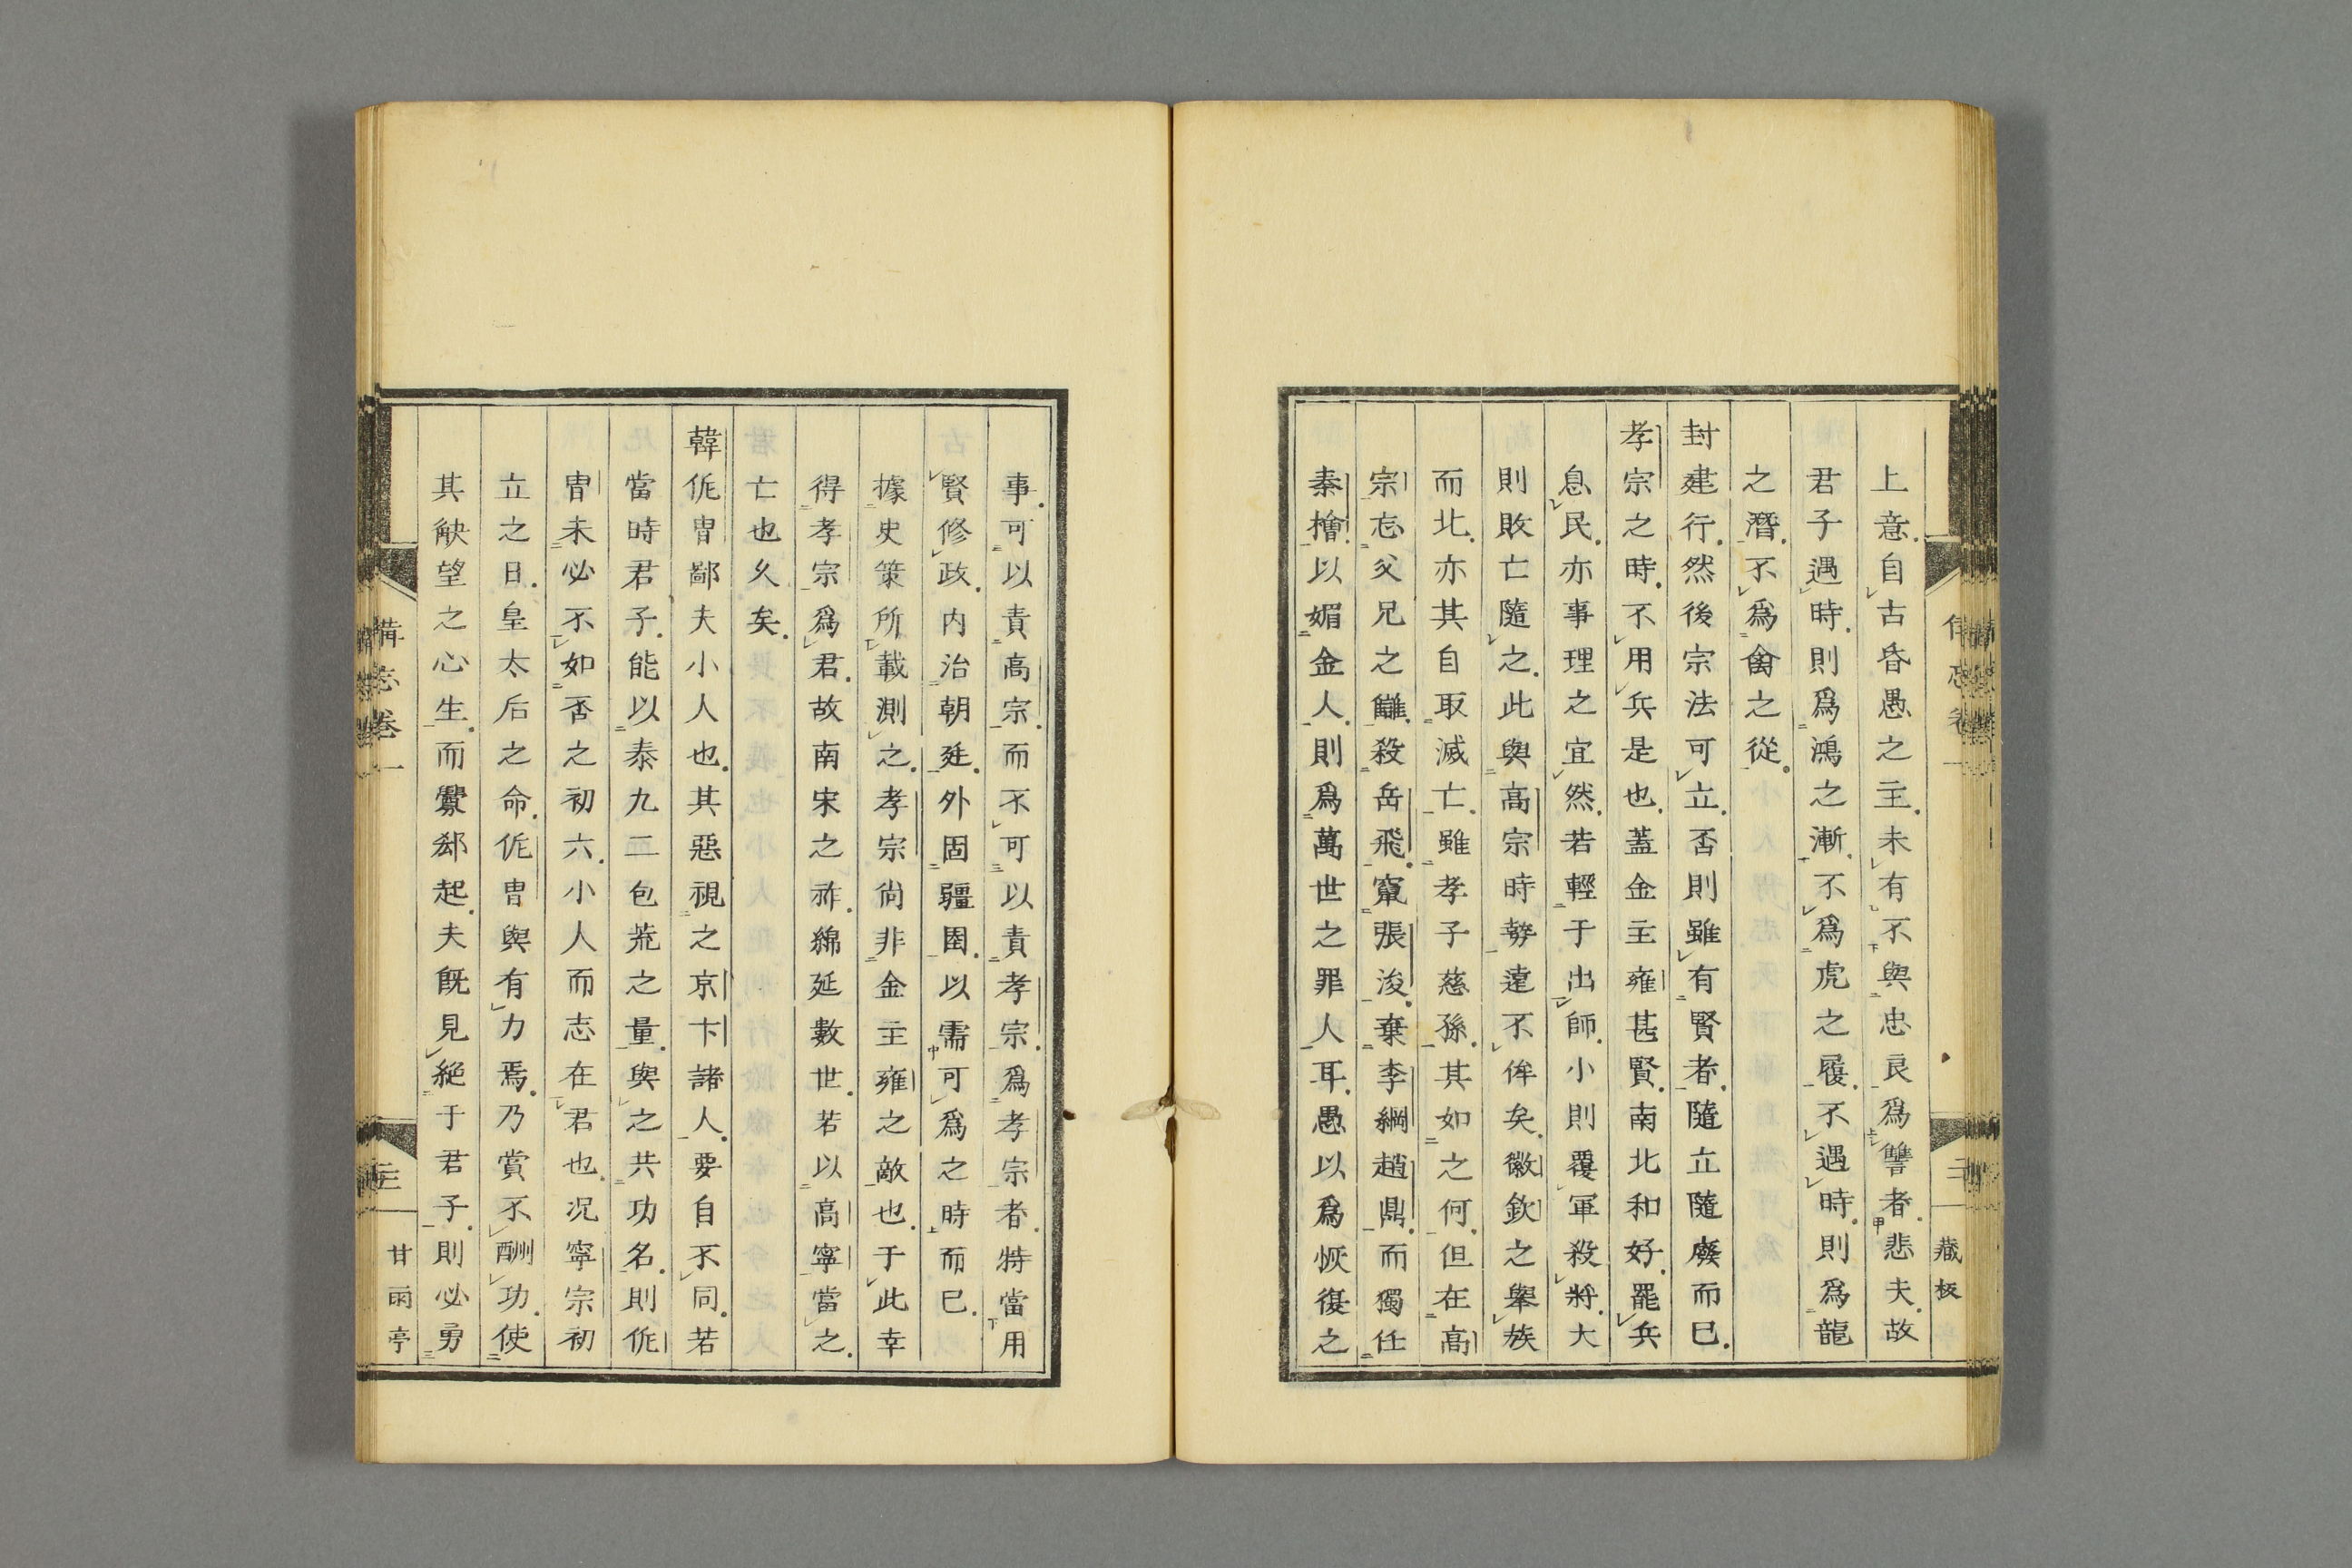 上意自古昏愚之主未有不與忠良爲讐者悲夫故
君子遇時則爲鴻之漸不爲虎之履不遇時則爲龍
之潛不爲禽之從
封建行然後宗法可立否則雖有賢者隨立隨廢而已
孝宗之時不用兵是也蓋金主雍甚賢南北和好罷兵
息民亦事理之宜然若輕于出師小則覆軍殺將大
則敗亡隨之此與高宗時勢遠不侔矣徽欽之舉族
而北亦其自取滅亡雖孝子慈孫其如之何但在高
宗忘父兄之讎殺岳飛竄張浚棄李綱趙鼎而獨任
秦檜以媚金人則爲萬世之罪人耳愚以爲恢復之
藏板
事可以責高宗而不可以責孝宗爲孝宗者特當用
賢修政内治朝廷外固疆圉以需可爲之時而已
據史策所載測之孝宗尙非金主雍之敵也于此幸
得孝宗爲君故南宋之祚綿延數世若以高寧當之
亡也久矣
韓侂冑鄙夫小人也其惡視之京卞諸人要自不同若
當時君子能以泰九二包荒之量與之共功名則侂
冑未必不如否之初六小人而志在君也况寧宗初
立之日皇太后之命侂冑與有力焉乃賞不酬功使
其觖望之心生而釁郄起夫既見絶于君子則必勇
備忘卷一
三
甘雨亭